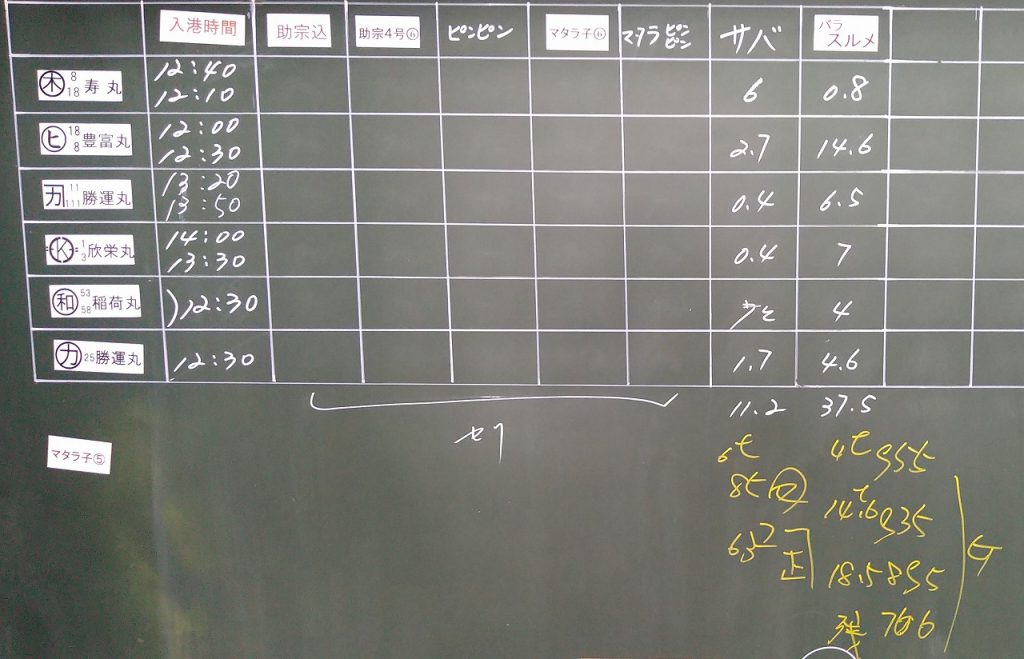 入港時間 助宗込 助宗4号⑥ ピンピン マタラ子⑥ マタラピンピン サバ バラスルメ
木 8 18 寿丸 12:40 12:10 6 0.8
ヒ 18 8 豊富丸 12:00 12:30 2.7 14.6
カ 11 111 勝運丸 13:20 13:50 0.4 6.5
K 1 3 欣栄丸 14:00 13:30 0.4 7
和 53 58 稲荷丸 )12:30 4
カ 25 勝運丸 12:30 1.7 4.6
11.2 37.5
セリ
マタラ子⑤
6t 4t 955
8t 14.6t 935
18.5 895
残 766